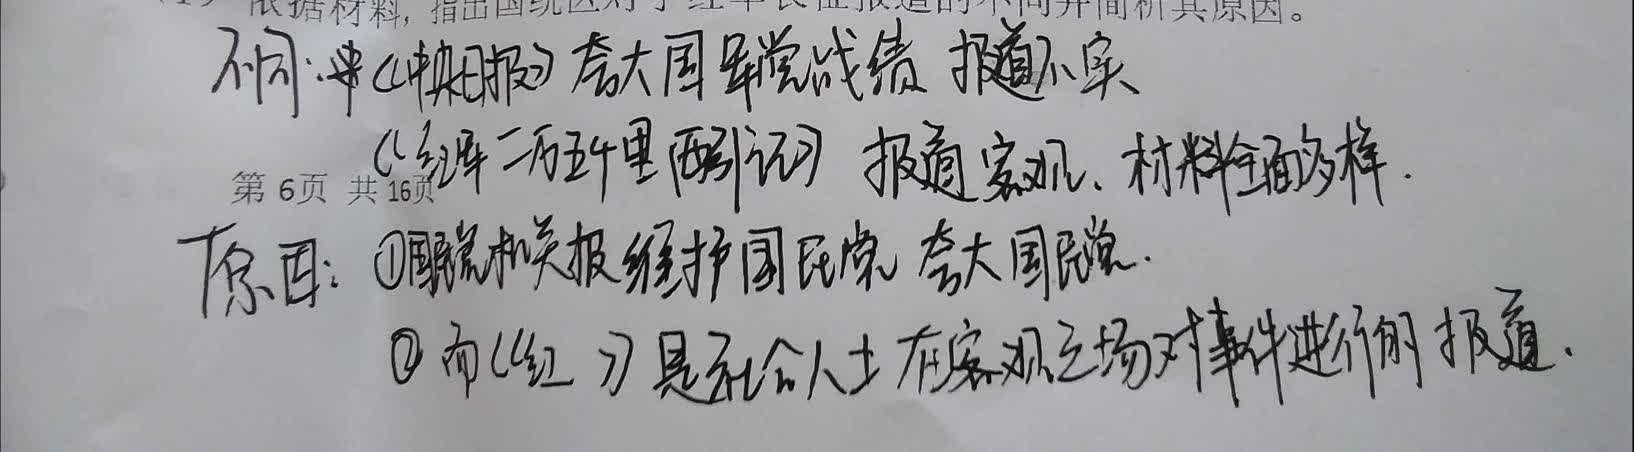 依据材料,指出国统区对于红军长征报道的不同并简析其原因。
不同:《中央日报》夸大国民党战绩 报道不实
《红军二万五千里西引记》报道客观、材料全面多样.
第 6页 共 16页
原因:①国民党机关报维护国民党 夸大国民党.
②而《红 》是社会人士在客观立场对事件进行的报道.